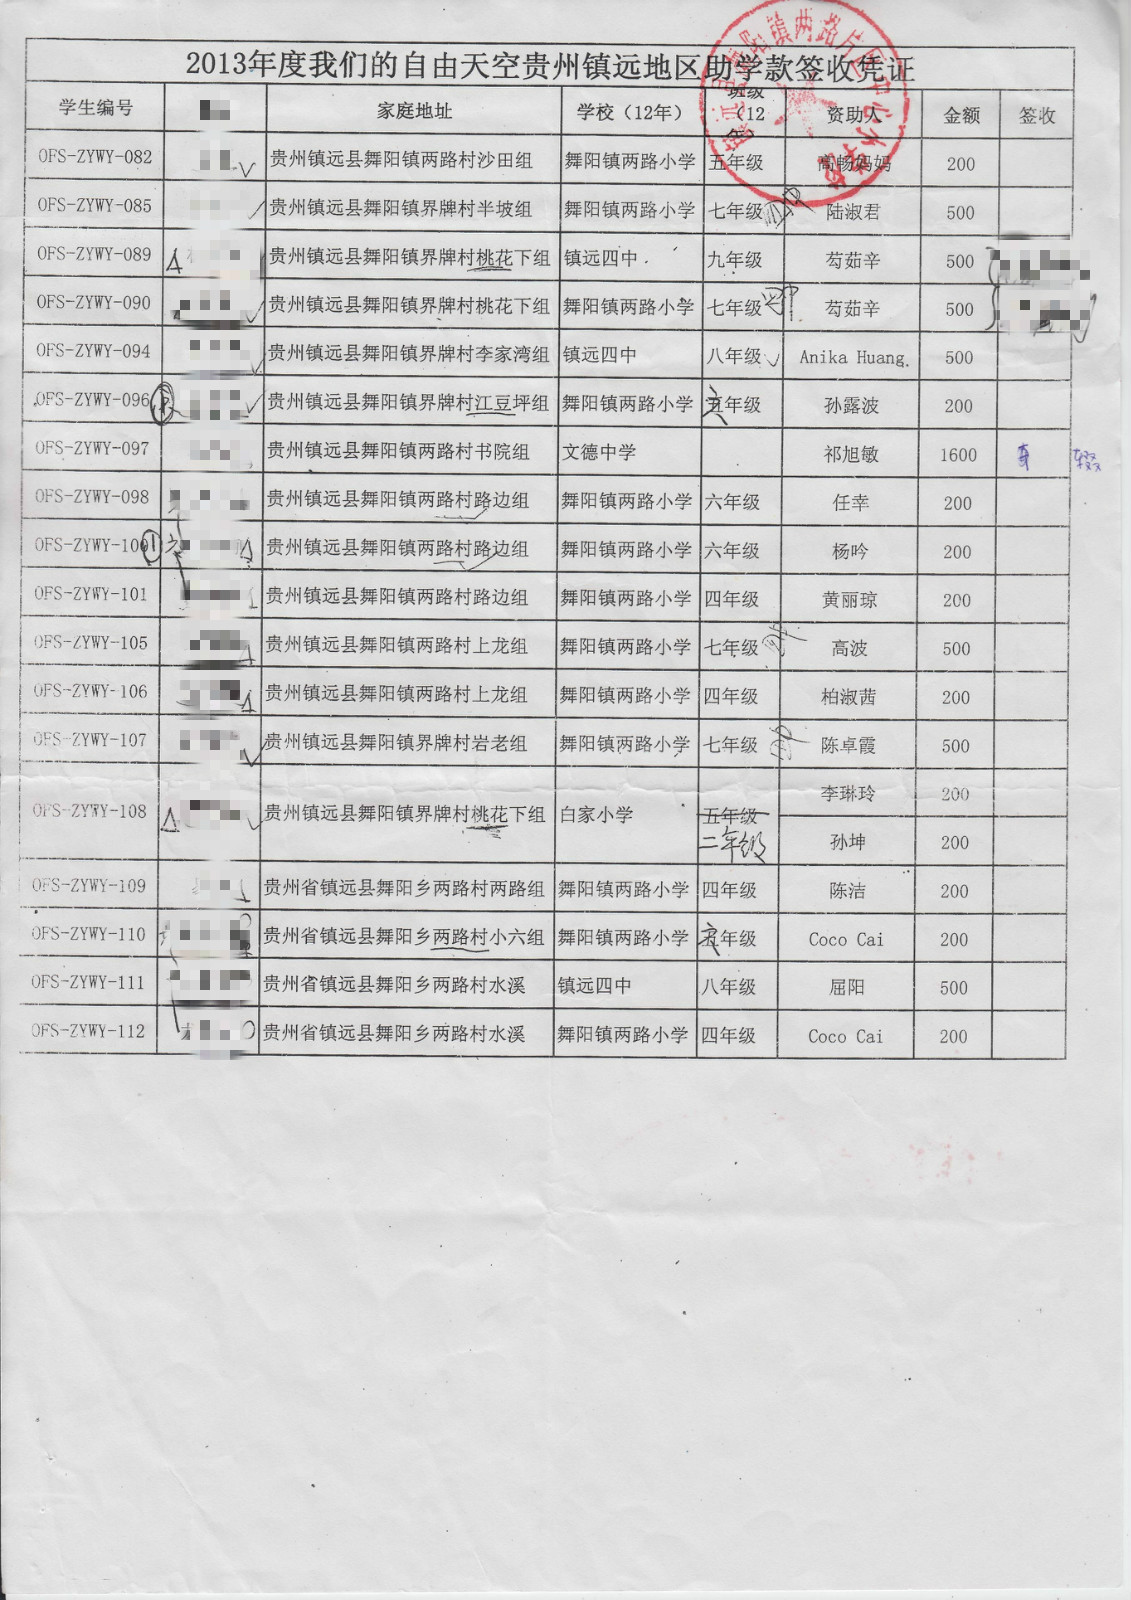 2013年度我们的自由天空贵州镇远地区助学款签收凭证
学生编号 家庭地址 学校（12年） 班级（12 资助人 金额 签收
OFS-ZYWY-082 贵州镇远县舞阳镇两路村沙田组 舞阳镇两路小学 五年级 高畅妈妈 200
OFS-ZYWY-085 贵州镇远县舞阳镇界牌村半坡组 舞阳镇两路小学 七年级 陆淑君 500
OFS-ZYWY-089 贵州镇远县舞阳镇界牌村桃花下组 镇远四中 九年级 芶茹辛 500
OFS-ZYWY-090 贵州镇远县舞阳镇界牌村桃花下组 舞阳镇两路小学 七年级 芶茹辛 500
OFS-ZYWY-094 贵州镇远县舞阳镇界牌村李家湾组 镇远四中 八年级 Anika Huang. 500
OFS-ZYWY-096 贵州镇远县舞阳镇界牌村江豆坪组 舞阳镇两路小学 六年级 孙露波 200
OFS-ZYWY-097 贵州镇远县舞阳镇两路村书院组 文德中学 祁旭敏 1600
OFS-ZYWY-098 贵州镇远县舞阳镇两路村路边组 舞阳镇两路小学 六年级 任幸 200
OFS-ZYWY-100 贵州镇远县舞阳镇两路村路边组 舞阳镇两路小学 六年级 杨吟 200
OFS-ZYWY-101 贵州镇远县舞阳镇两路村路边组 舞阳镇两路小学 四年级 黄丽琼 200
OFS-ZYWY-105 贵州镇远县舞阳镇两路村上龙组 舞阳镇两路小学 七年级 高波 500
OFS-ZYWY-106 贵州镇远县舞阳镇两路村上龙组 舞阳镇两路小学 四年级 柏淑茜 200
OFS-ZYWY-107 贵州镇远县舞阳镇界牌村岩老组 舞阳镇两路小学 七年级 陈卓霞 500
OFS-ZYWY-108 贵州镇远县舞阳镇界牌村桃花下组 白家小学 五年级 李琳玲 200
二年级 孙坤 200
OFS-ZYWY-109 贵州省镇远县舞阳乡两路村两路组 舞阳镇两路小学 四年级 陈洁 200
OFS-ZYWY-110 贵州省镇远县舞阳乡两路村小六组 舞阳镇两路小学 年级 Coco Cai 200
OFS-ZYWY-111 贵州省镇远县舞阳乡两路村水溪 镇远四中 八年级 屈阳 500
OFS-ZYWY-112 贵州省镇远县舞阳乡两路村水溪 舞阳镇两路小学 四年级 Coco Cai 200